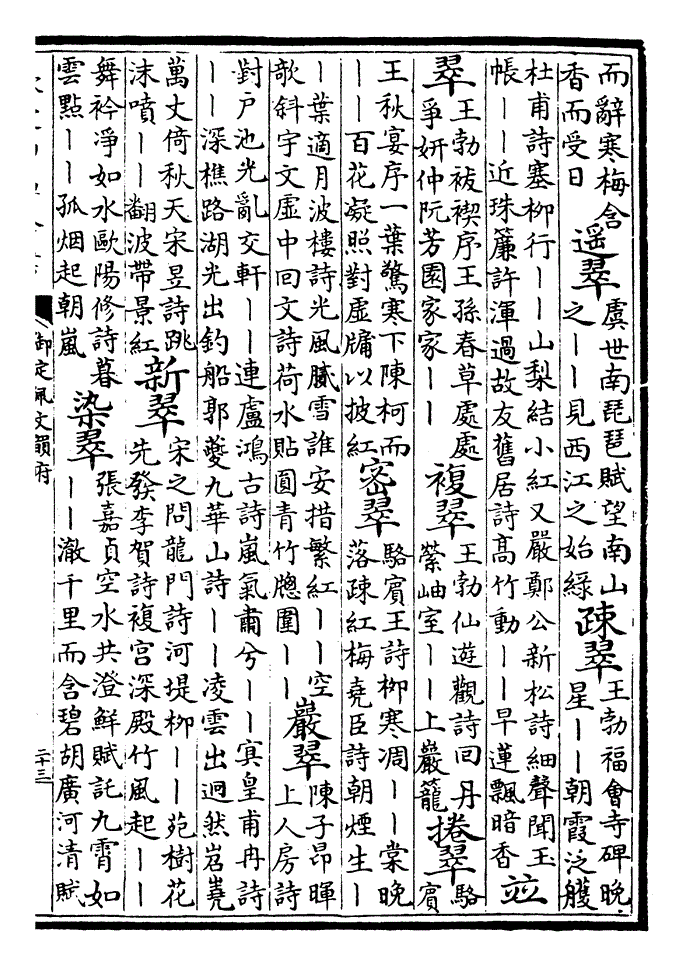 而辭寒梅含
香而受日
遥翠
虞世南琵琶賦望南山
之丨丨見西江之始緑
疎翠
王勃福會寺碑晚
星丨丨朝霞泛艧
杜甫詩塞柳行丨丨山梨結小紅又嚴鄭公新松詩細聲聞玉
帳丨丨近珠簾許渾過故友舊居詩高竹動丨丨早蓮飄暗香
竝
翠
王勃祓禊序王孫春草處處
爭妍仲阮芳園家家丨丨
複翠
王勃仙遊觀詩回丹
縈岫室丨丨上巖籠
捲翠
駱
賓
王秋宴序一葉驚寒下陳柯而
丨丨百花凝照對虛牗以披紅
密翠
駱賓王詩柳寒凋丨丨棠晚
落疎紅梅堯臣詩朝煙生丨
丨葉適月波樓詩光風膩雪誰安措繁紅丨丨空
歌斜宇文虛中回文詩荷水貼圓青竹牕圍丨丨
巖翠
陳子昂暉
上人房詩
對戶池光亂交軒丨丨連盧鴻古詩嵐氣肅兮丨丨㝠皇甫冉詩
丨丨深樵路湖光出釣船郭夔九華山詩丨丨凌雲出迥然岧嶤
萬丈倚秋天宋昱詩跳
沫噴丨丨翻波帶景紅
新翠
宋之問龍門詩河堤柳丨丨苑樹花
先發李賀詩複宮深殿竹風起丨丨
舞衿凈如水歐陽修詩暮
雲點丨丨孤烟起朝嵐
染翠
張嘉貞空水共澄鮮賦託九霄如
丨丨澈千里而含碧胡廣河清賦
御定佩文韻府
二十三